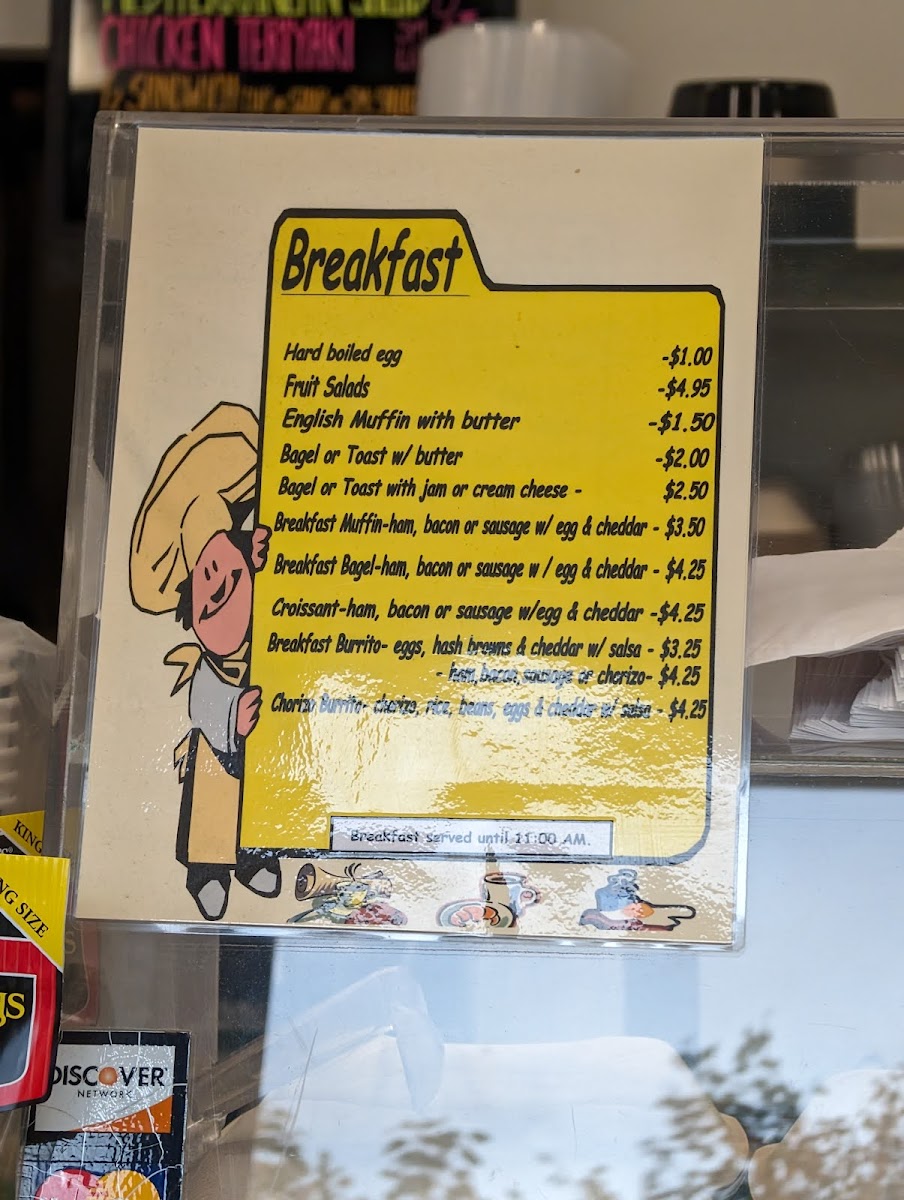 CHICKEN TERIYAKI
Breakfast
Hard boiled egg -$1.00
Fruit Salads -$4.95
English Muffin with butter -$1.50
Bagel or Toast w/ butter -$2.00
Bagel or Toast with jam or cream cheese - $2.50
Breakfast Muffin-ham, bacon or sausage w/ egg & cheddar - $3.50
Breakfast Bagel-ham, bacon or sausage w / egg & cheddar - $4.25
Croissant-ham, bacon or sausage w/egg & cheddar -$4.25
Breakfast Burrito- eggs, hash browns & cheddar w/ salsa - $3.25
- ham, bacon, sausage or chorizo- $4.25
Chorizo Burrito- chorizo, rice, beans, eggs & cheddar w/ salsa - $4.25
Breakfast served until 11:00 AM.
KING
NG SIZE
gs
DISCOVER
NETWORK